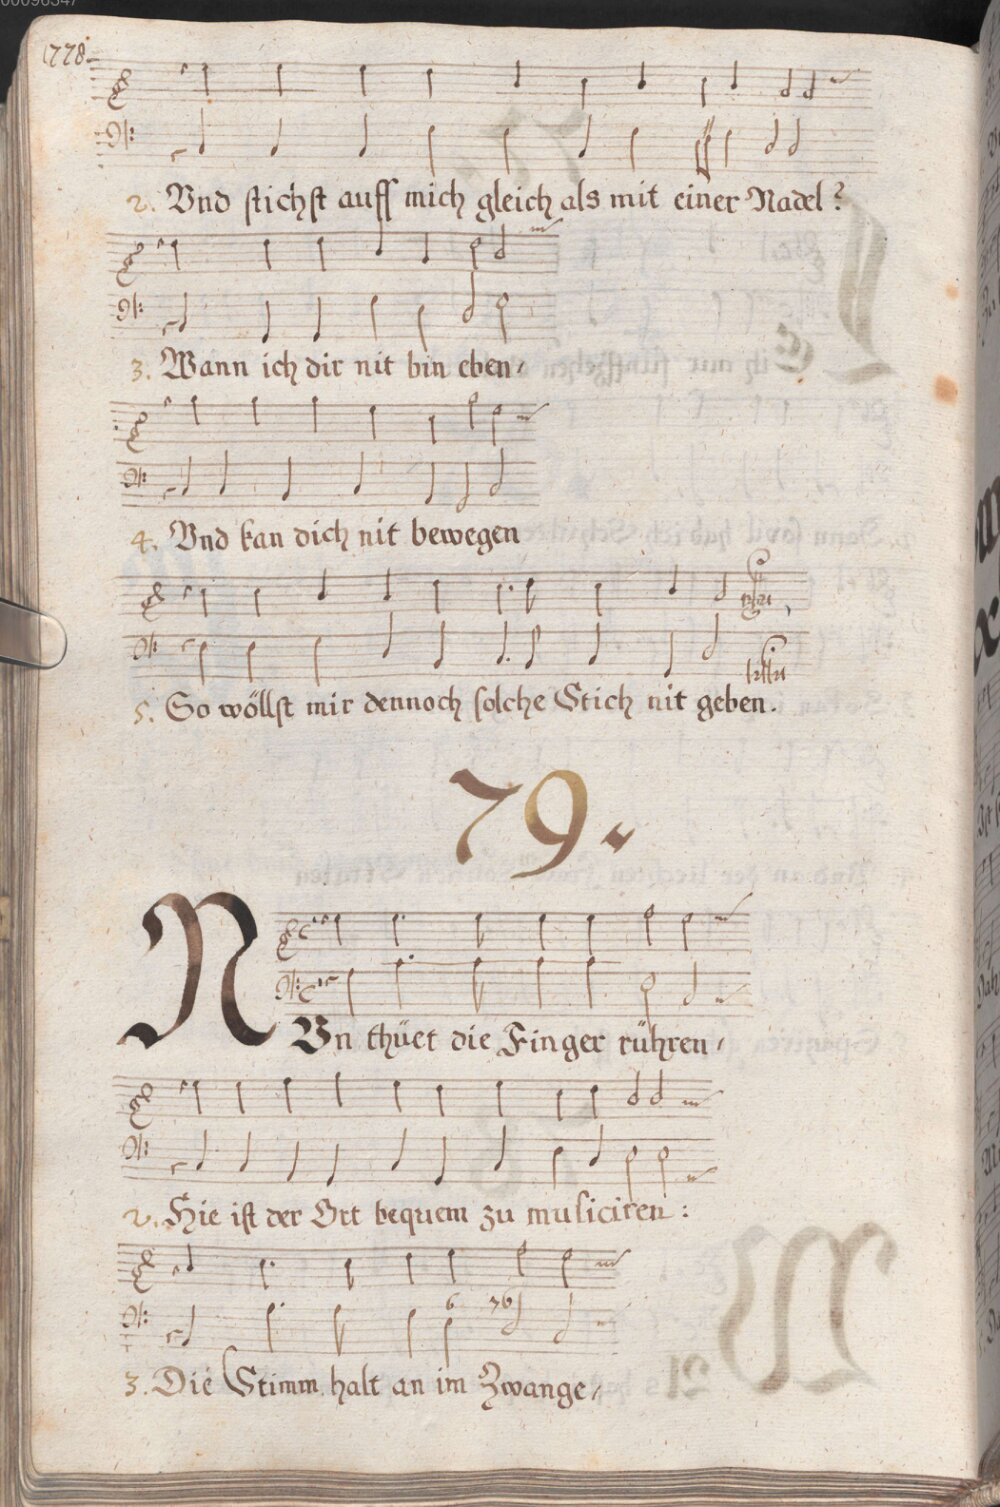 00096347
1778.
2. Vnd stichst auff mich gleich als mit einer Nadel?
3. Wann ich dir nit bin eben,
4. Vnd kan dich nit bewegen
5. So wöllst mir dennoch solche Stich nit geben.
79.
NVn thüet die Finger rühren,
2. Hie ist der Ort bequem zu musiciren:
6 76
3. Die Stimm halt an im Zwange,